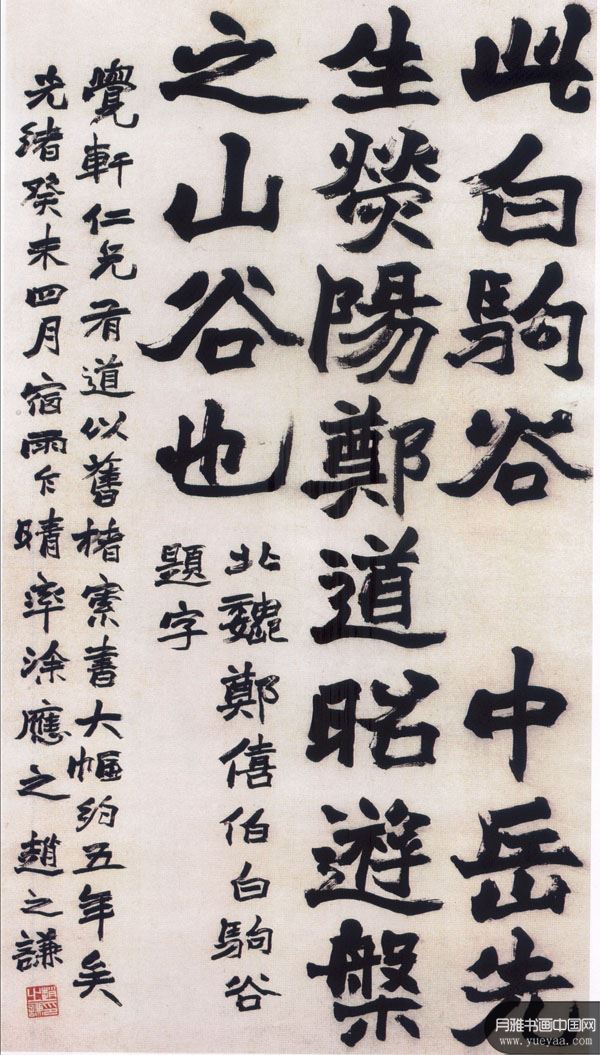 此白駒谷 中岳先
生熒陽鄭道昭遊槃
之山谷也
北魏鄭僖伯白駒谷
題字
覺軒仁兄有道以舊楮索書大幅約五年矣
光緒癸未四月宿雨乍晴率涂應之趙之謙
月雅书画中国网
www.yueyaa.com